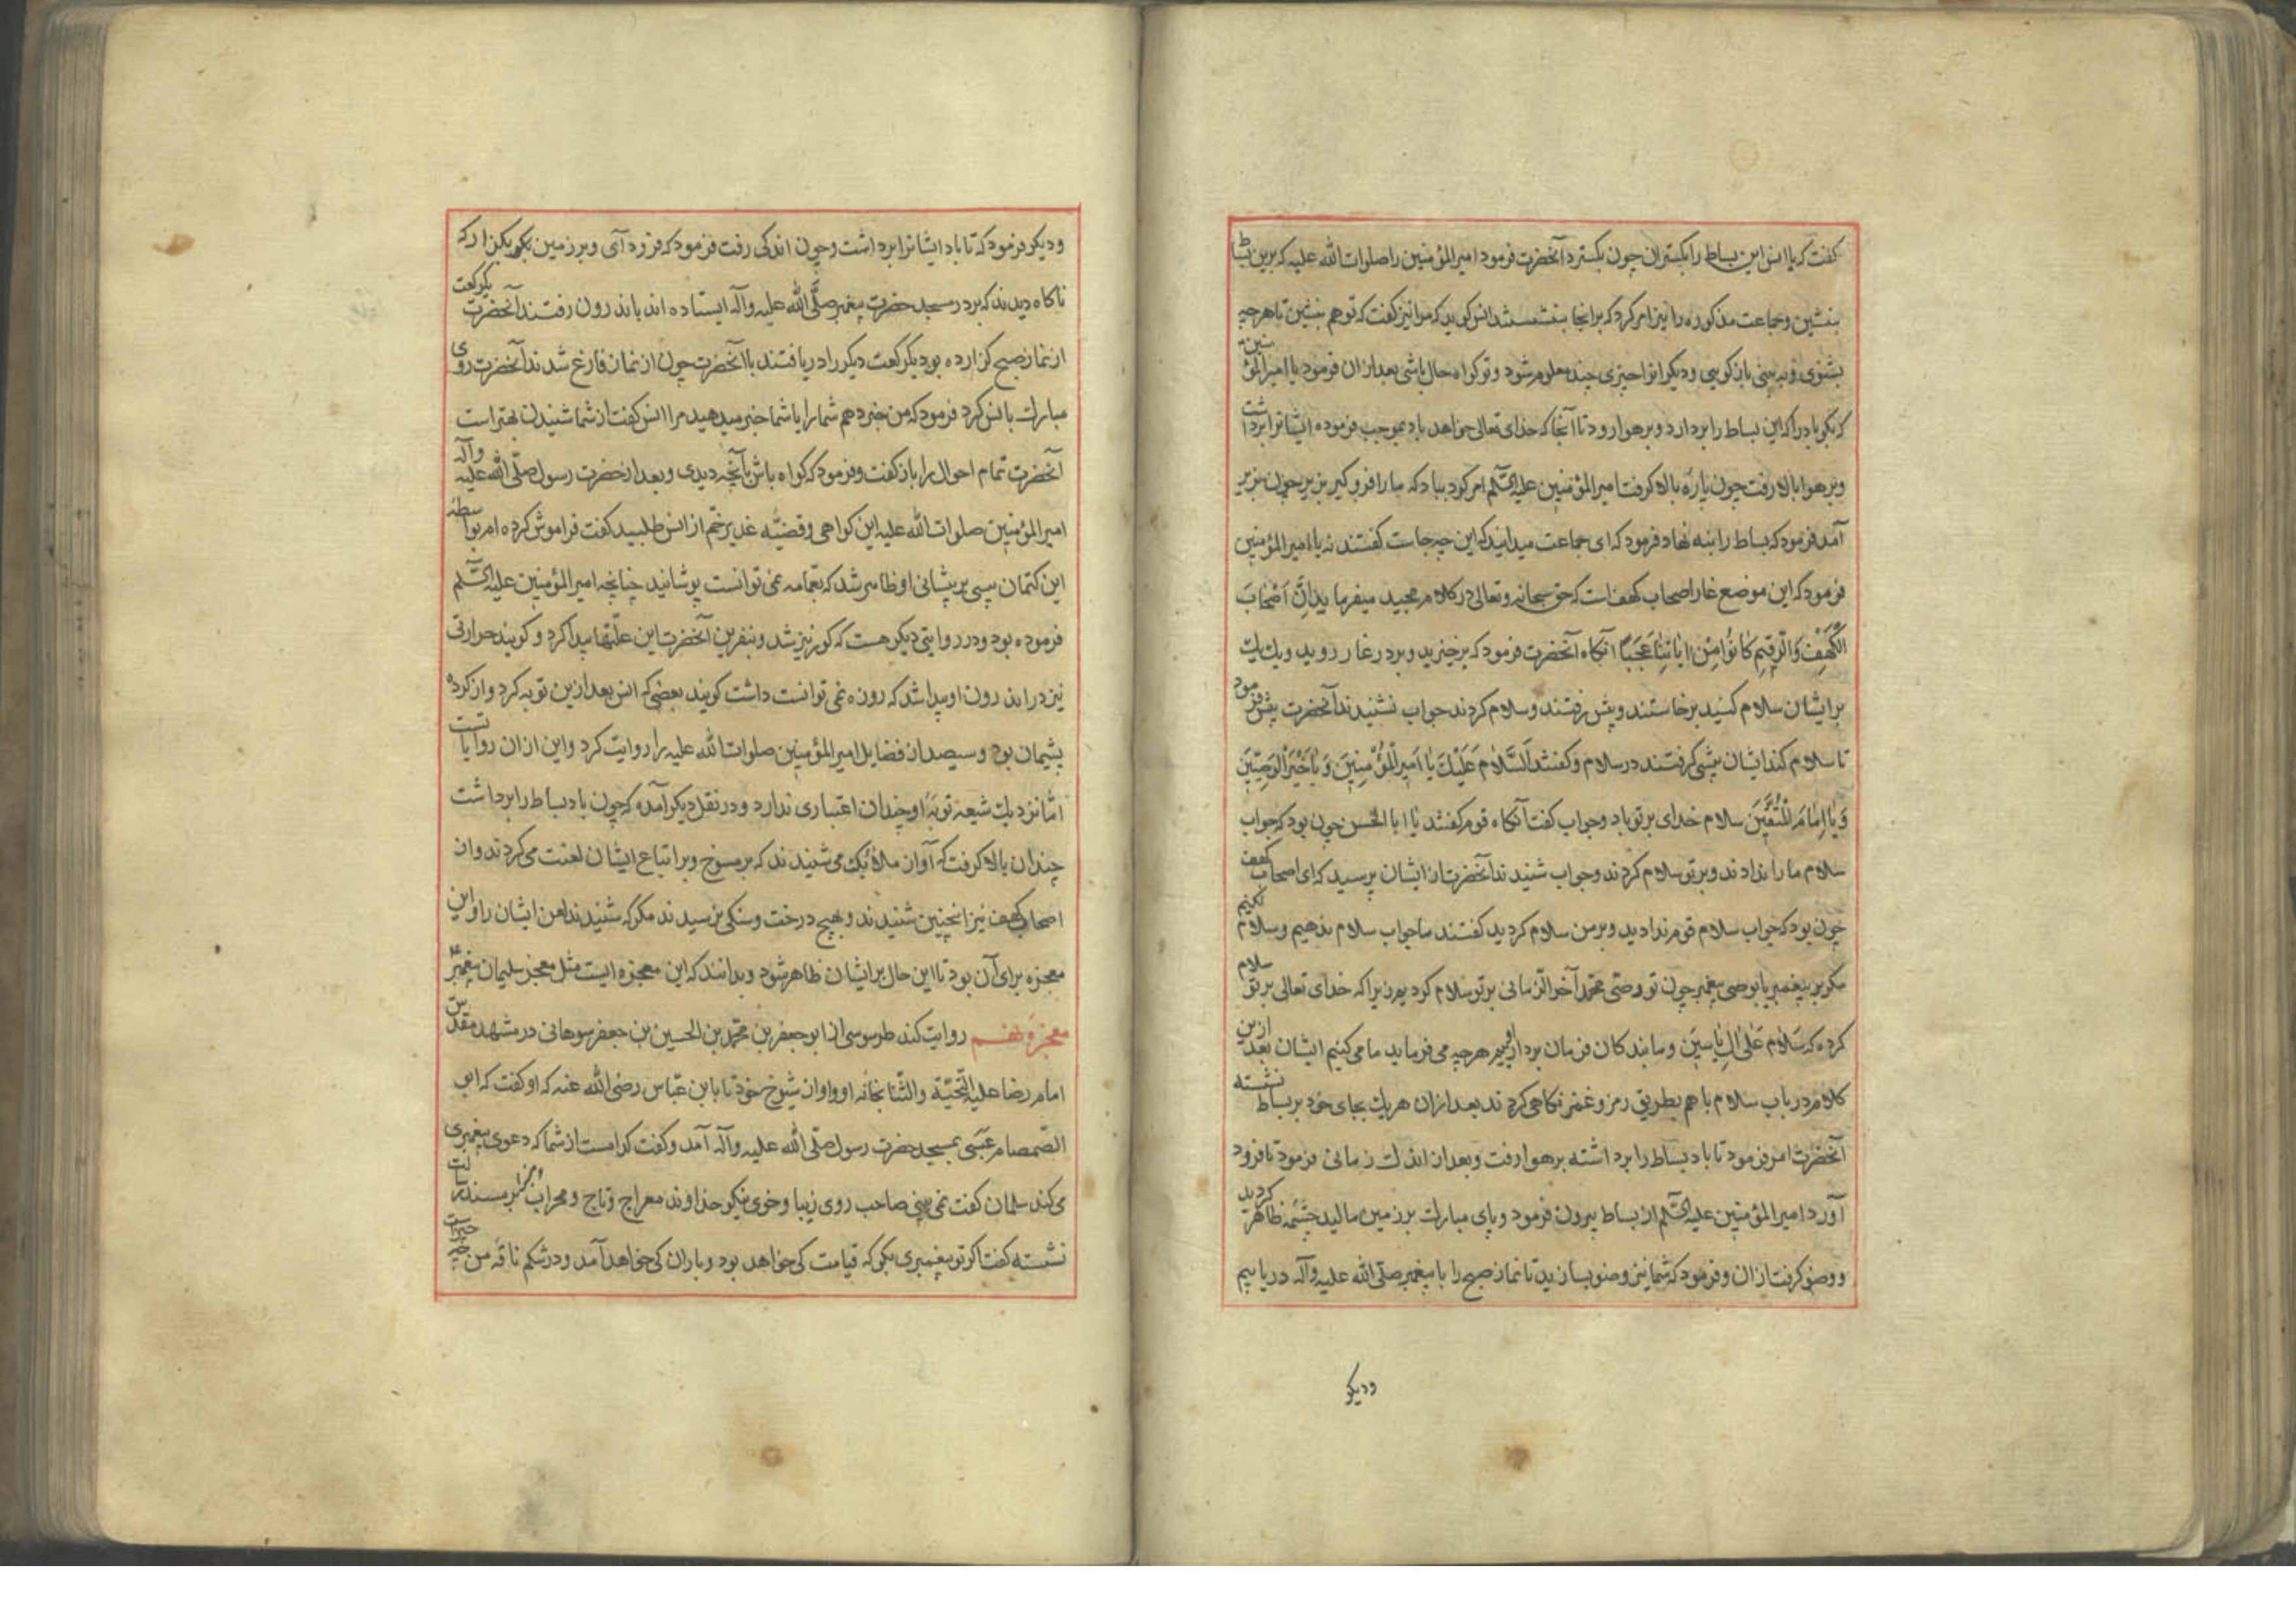 گفت که یا انس این بساط را بگستران چون بگسترد آنحضرت فرمود امیرالمؤمنین را صلوات الله علیه که برین بساط
بنشین و جماعت مذکوره را نیز امر کرد که برانجا بنشستند انس گوید که مرا نیز گفت که تو هم بنشین تا هرچه
بشنوی و ببینی باز گویی و دیگرانرا چیزی چند معلوم شود و تو گواه حال باشی بعد ازان فرمود یا امیرالمؤمنین
که بگو باد را که این بساط را بردارد و بر هوا رود تا آنجا که خدای تعالی خواهد باد بموجب فرموده ایشانرا برداشت
و بر هوا بالا رفت چون پاره بالا گرفت امیرالمؤمنین علیه السّلم امر کرد بباد که ما را فرو گیر بزیر چون بزیر
آمد فرمود که بساط را بنه نهاد فرمود که ای جماعت میدانید که این چه جاست گفتند نه یا امیرالمؤمنین
فرمود که این موضع غار اصحاب کهف است که حق سبحانه و تعالی در کلام مجید میفرماید انَّ اَصْحابَ
الْکَهْفِ وَالرَّقیمِ کانُوا مِنْ ایاتِنا عَجَباً آنگاه آنحضرت فرمود که برخیزید و بر در غار روید و یک یک
بر ایشان سلام کنید برخاستند و پیش رفتند و سلام کردند جواب نشنیدند آنحضرت پیش فرمود
تا سلام کند ایشان پیشی گرفتند در سلام و گفتند اَلسَّلامُ عَلَیْکَ یا اَمیرَالْمُؤْمِنینَ وَ یا خَیْرَ الْوَصِیّینَ
وَ یا اِمامَ الْمُتَّقینَ سلام خدای بر تو باد و جواب گفت آنگاه قوم گفتند یا ابا الحسن چون بود که جواب
سلام ما را ندادند و بر تو سلام کردند و جواب شنیدند آنحضرت از ایشان پرسید که ای اصحاب کهف
چون بود که جواب سلام قوم ندادید و بر من سلام کردید گفتند ما جواب سلام ندهیم و سلام نکنیم
مگر بر پیغمبر یا بوصی پیغمبر چون تو وصی محمد آخر الزمانی بر تو سلام کردیم زیرا که خدای تعالی بر تو سلام
کرده که سَلامٌ عَلی الِ یاسینَ و ما بندکان فرمان برداریم هرچه می فرماید ما می کنیم ایشان بعد ازین
کلام در باب سلام با هم بطریق رمز و غمز نگاهی کردند بعد ازان هر یک بجای خود بر بساط نشسته
آنحضرت امر فرمود تا باد بساط را برداشته بر هوا رفت و بعد از اندک زمانی فرمود تا فرود
آورد امیرالمؤمنین علیه السّلم از بساط بیرون فرمود و پای مبارک بر زمین مالید چشمه ظاهر گردید
و وضو گرفت ازان و فرمود که شما نیز وضو بسازید تا نماز صبح را با پیغمبر صلّی الله علیه وآله دریابیم
ودیگر
و دیگر فرمود که تا باد ایشانرا برداشت و چون اندکی رفت فرمود که فرود آی و بر زمین بگذار که
ناگاه دیدند که بر در مسجد حضرت پیغمبر صلّی الله علیه وآله ایستاده اند باندرون رفتند آنحضرت یکرکعت
از نماز صبح گزارده بود یکرکعت دیگر را دریافتند با آنحضرت چون از نماز فارغ شدند آنحضرت روی
مبارک بانس کرد فرمود که من خبر دهم شما را یا شما خبر میدهید مرا انس گفت از شما شنیدن بهتر است
آنحضرت تمام احوال را باز گفت و فرمود که گواه باش بآنچه دیدی و بعد از حضرت رسول صلّی الله علیه وآله
امیرالمؤمنین صلوات الله علیه این گواهی و قضیّه غدیر خم از انس طلبید گفت فراموش کرده ام بواسطه
این کتمان پیسی بر پیشانی او ظاهر شد که بعمامه نمی توانست پوشانید چنانچه امیرالمؤمنین علیه السّلم
فرموده بود و در روایتی دیگر هست که کور نیز شد و بنفرین آنحضرت این علّتها پیدا کرد و گویند حرارتی
نیز در اندرون او پیدا شد که روزه نمی توانست داشت گویند بعضی که انس بعد ازین توبه کرد و از کرده
پشیمان بود و سیصد از فضایل امیرالمؤمنین صلوات الله علیه را روایت کرد و این ازان روایاتست
امّا نزدیک شیعه توبه او چندان اعتباری ندارد و در نقل دیگر آمده که چون باد بساط را برداشت
چندان بالا گرفت که آواز ملائک می شنیدند که بر مسوخ و بر اتباع ایشان لعنت می کردند و از
اصحاب کهف نیز اینچنین شنیدند و بهیچ درخت و سنگی نرسیدند مگر که شنیدند لعن ایشان را و این
معجزه برای آن بود تا این حال بر ایشان ظاهر شود و بدانند که این معجزه ایست مثل معجز سلیمان پیغمبر
معجزه نهم روایت کند طوسی از ابو جعفر بن محمد بن الحسین بن جعفر سوهانی در مشهد مقدّس
امام رضا علیه التّحیّة والثّنا بخانه او و او از شیوخ خود تا بابن عبّاس رضی الله عنه که او گفت که ابو
الصّمصام عبسی بمسجد حضرت رسول صلّی الله علیه وآله آمد و گفت کدامست از شما که دعوی پیغمبری
می کند سلمان گفت نمی بینی صاحب روی زیبا و خوی نیکو خداوند معراج و تاج و محراب بر مسند رسالت
نشسته گفت اگر تو پیغمبری بگو که قیامت کی خواهد بود و باران کی خواهد آمد و در شکم ناقه من چه چیزاست